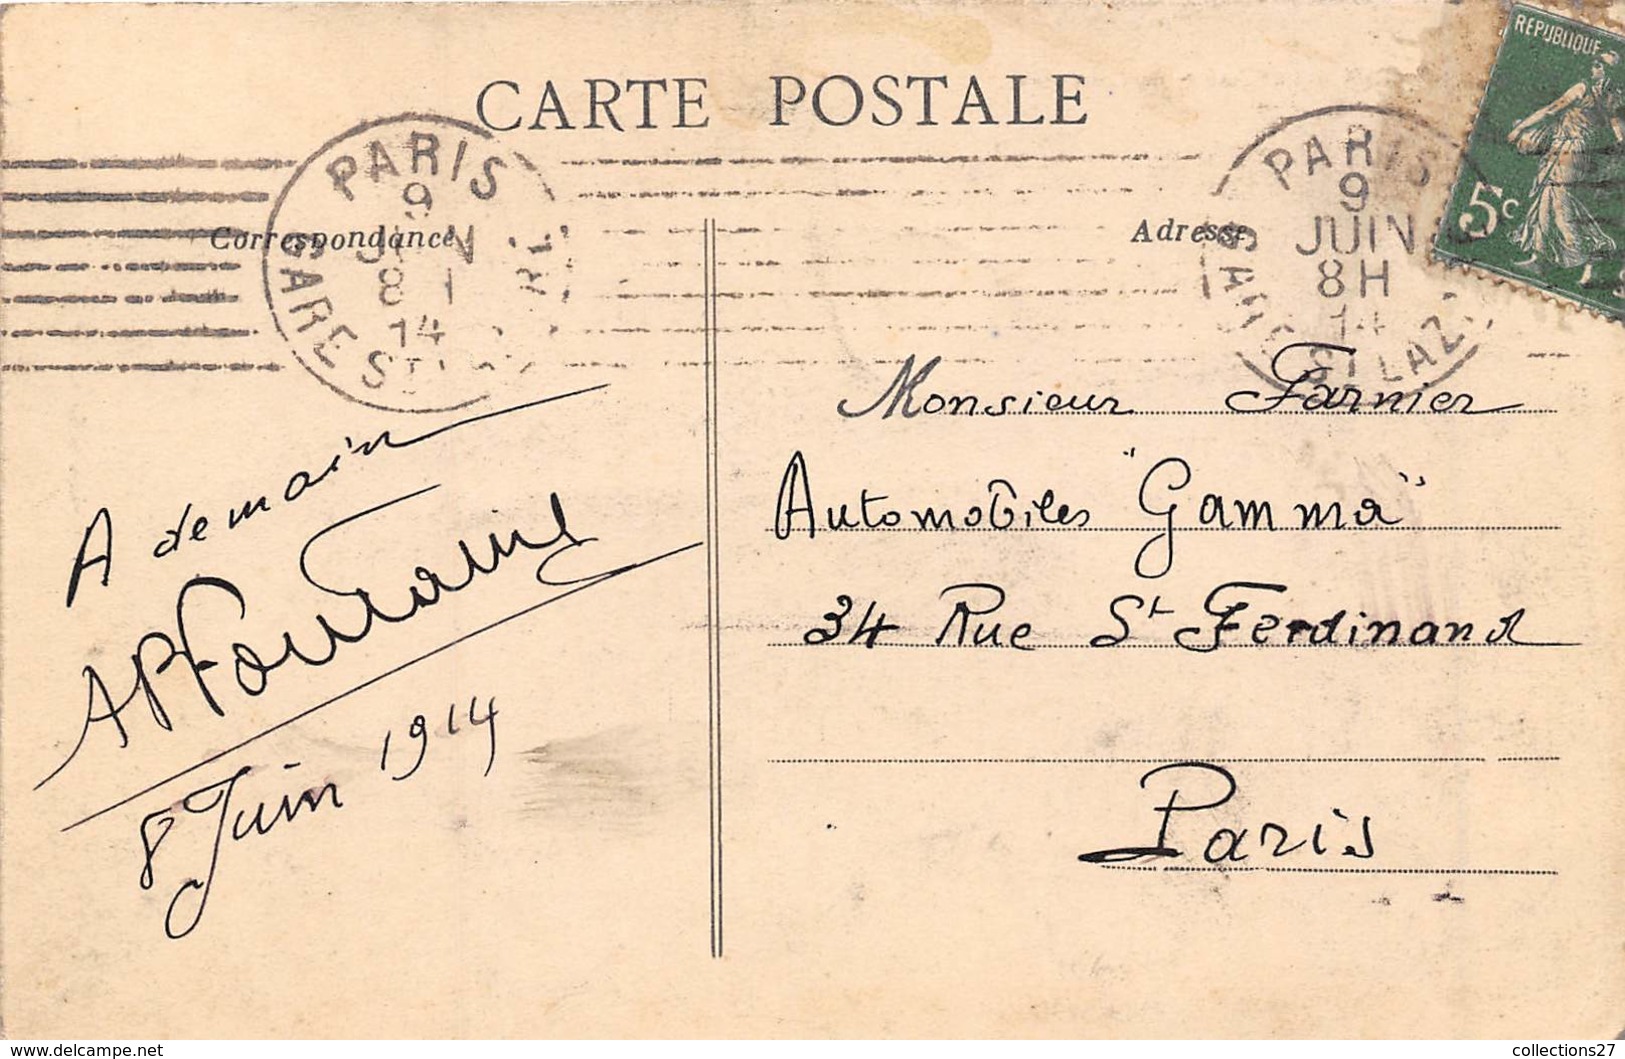 CARTE POSTALE
REPUBLIQUE
5c
PARIS
9
8
14
GARE ST
PARIS
9
JUIN
8H
14
GARE ST LAZ
Correspondance
Adresse
A demain
APFontaine
8 Juin 1914
Monsieur Farnier
Automobiles "Gamma"
34 Rue St Ferdinand
Paris
collections27